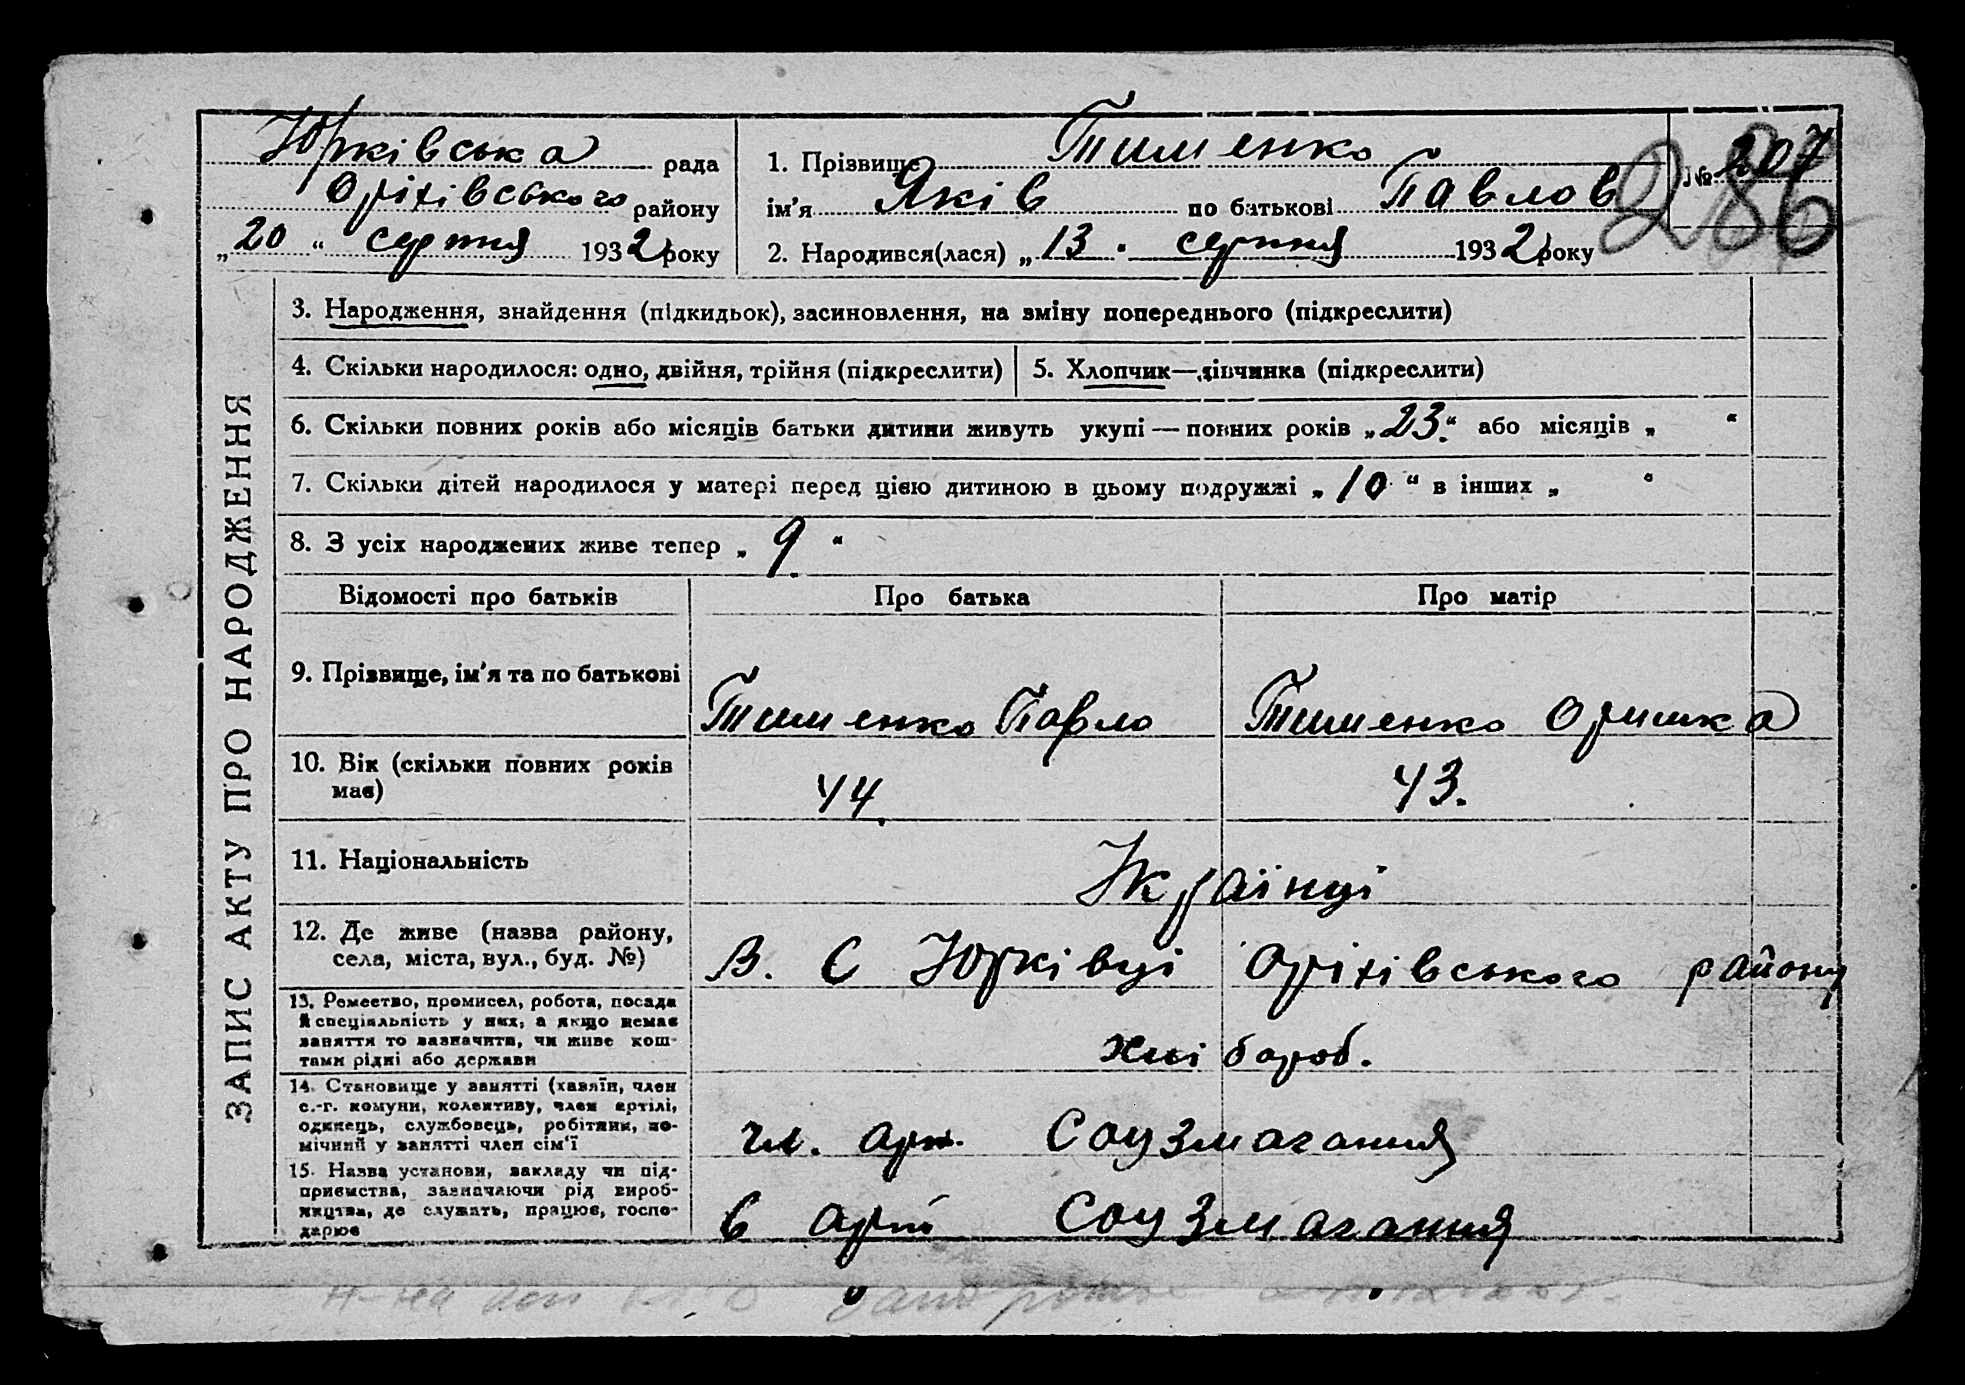 Юрківська рада
Оріхівського району
„20“ серпня 1932 року
1. Прізвище Тименко
ім'я Яків по батькові Павлов
2. Народився(лася) „13. серпня 1932 року
№ 207
286
ЗАПИС АКТУ ПРО НАРОДЖЕННЯ
3. Народження, знайдення (підкидьок), засиновлення, на зміну попереднього (підкреслити)
4. Скільки народилося: одно, двійня, трійня (підкреслити)
5. Хлопчик—дівчинка (підкреслити)
6. Скільки повних років або місяців батьки дитини живуть укупі — повних років „23“ або місяців „ “
7. Скільки дітей народилося у матері перед цією дитиною в цьому подружжі „10“ в інших „ “
8. З усіх народжених живе тепер „9“
Відомості про батьків Про батька Про матір
9. Прізвище, ім'я та по батькові
Тименко Павло Тименко Оришка
10. Вік (скільки повних років
має)
44. 43.
11. Національність
Українці
12. Де живе (назва району,
села, міста, вул., буд. №)
В. С Юрківці Оріхівського району
13. Ремество, промисел, робота, посада
й спеціяльність у них, а якщо немає
заняття то зазначити, чи живе кош-
тами рідні або держави
хлібороб.
14. Становище у занятті (хазяїн, член
с.-г. комуни, колективу, член артілі,
одинець, службовець, робітник, по-
мічний у занятті член сім'ї
чл. арт. Соцзмагання
15. Назва установи, закладу чи під-
приємства, зазначаючи рід вироб-
ництва, де служить, працює, госпо-
дарює
в арті Соцзмагання